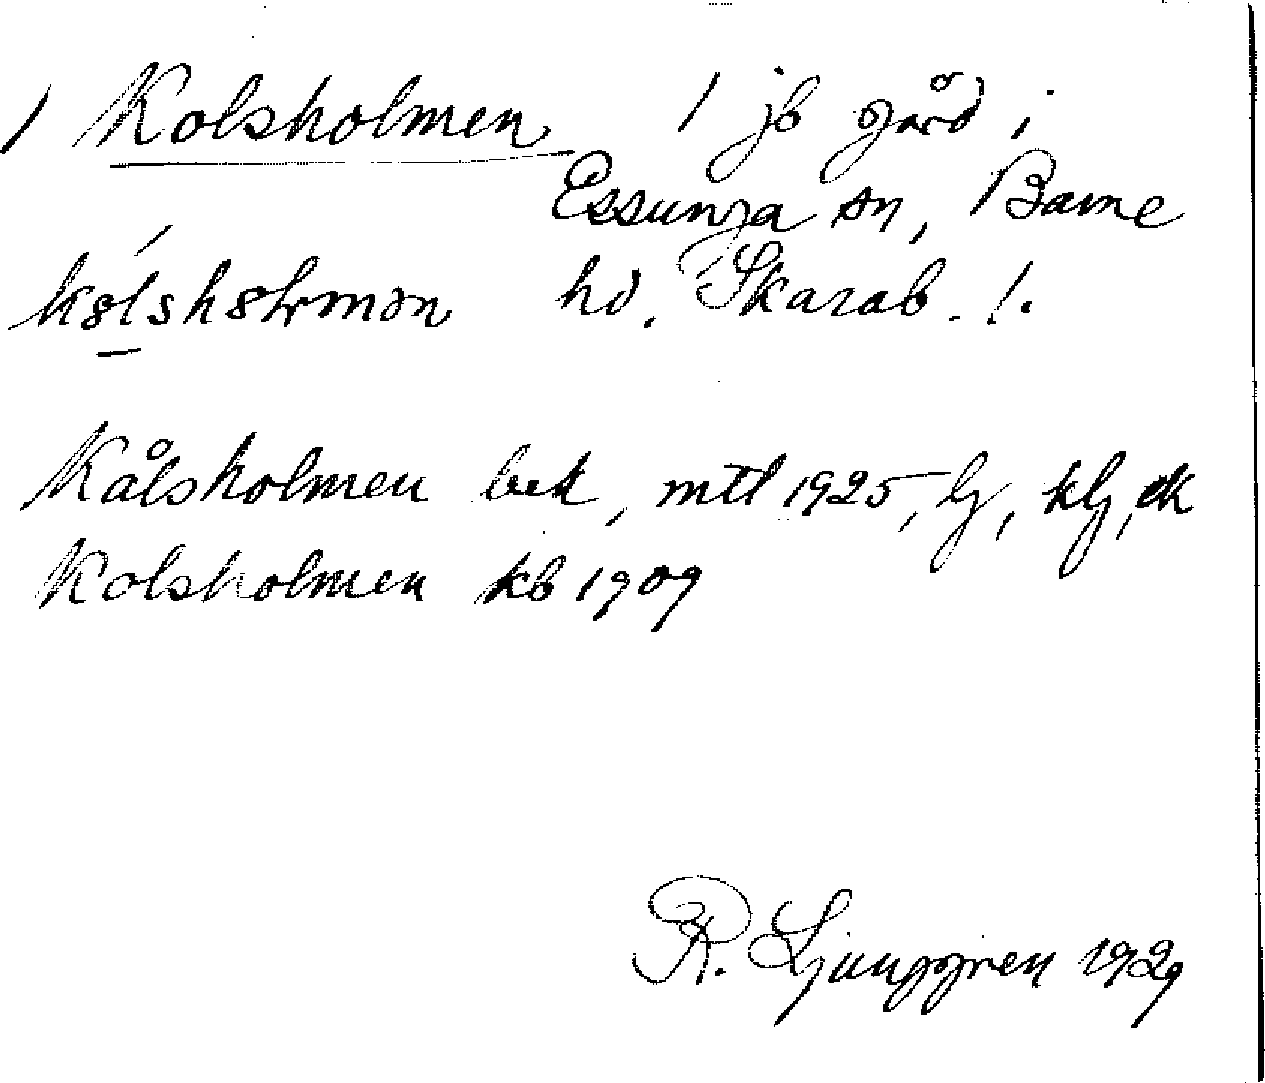 / Kolsholmen / jb gård i
Essunga sn, Barne
hd. Skarab. l.
Kålsholmen bek, mtl 1925, Lj, klj, ek
Kolsholmen kb 1909
R. Ljunggren 1929